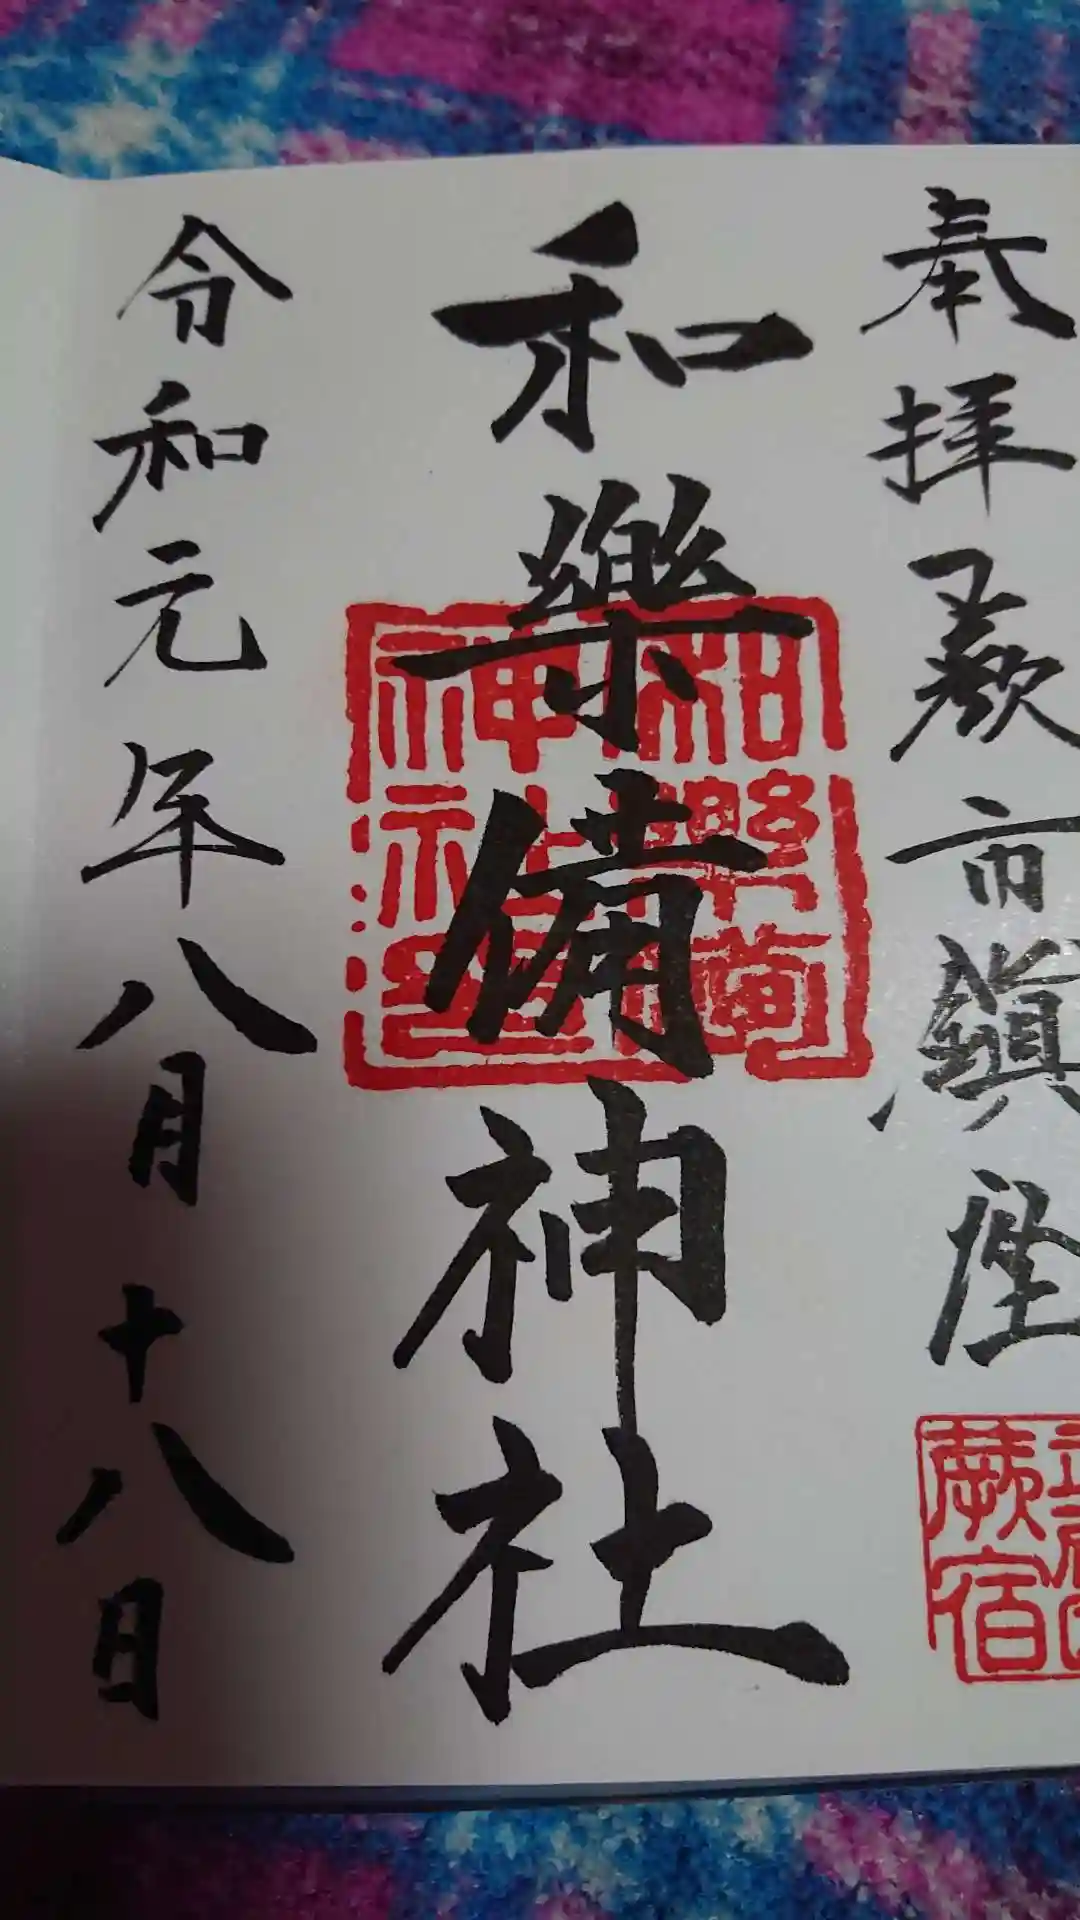 奉拝 蕨市鎮座
和樂備神社
令和元年八月十八日
蕨宿